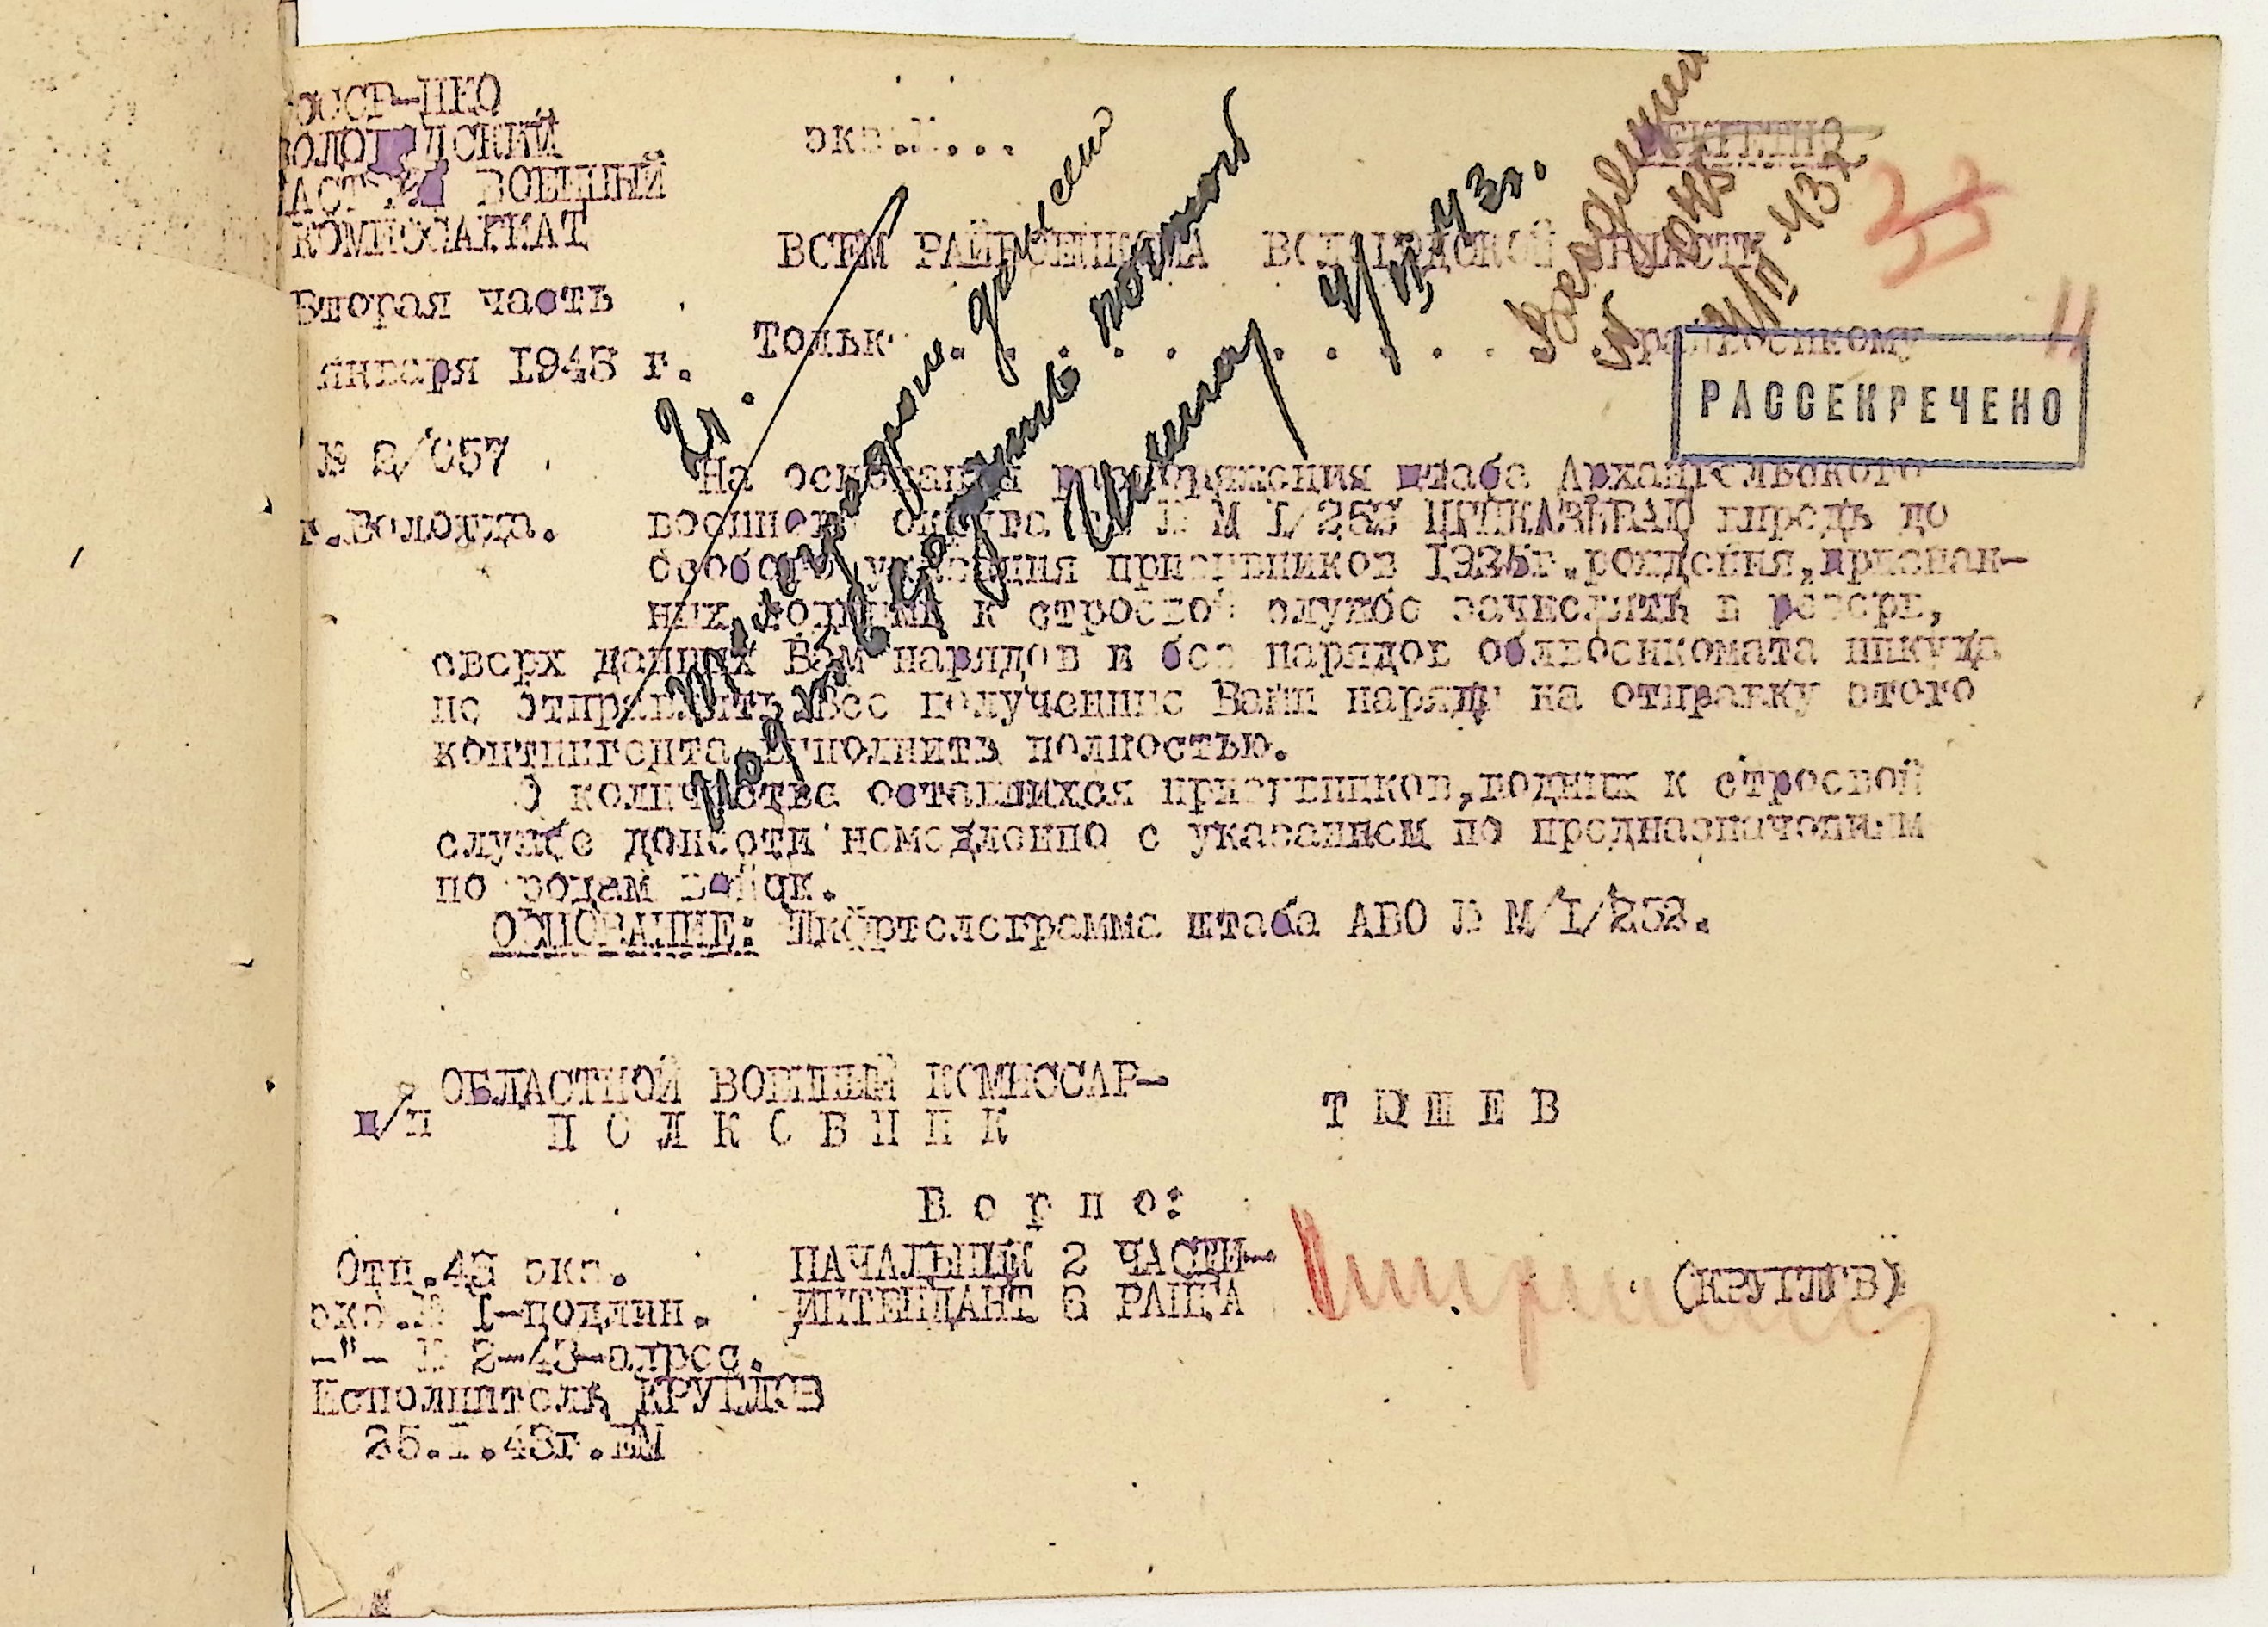 СССР-НКО
ВОЛОГОДСКИЙ
ОБЛАСТНОЙ ВОЕННЫЙ
КОМИССАРИАТ
Вторая часть
января 1943 г.
№ 2/057
г.Вологда.
экз.№...
СЕКРЕТНО
ВСЕМ РАЙВОЕНКОМАМ ВОЛОГОДСКОЙ ОБЛАСТИ
Только . . . . . . . . . райвоенкому
РАССЕКРЕЧЕНО
На основании распоряжения штаба Архангельского
военного округа № М 1/252 ПРИКАЗЫВАЮ впредь до
особого указания призывников 1925г.рождения,признан-
ных годными к строевой службе зачислить в резерв,
сверх данных Вам нарядов и без нарядов облвоенкомата никуда
не отправлять. Все полученные Вами наряды на отправку этого
контингента выполнить полностью.
О количестве оставшихся призывников,годных к строевой
службе донести немедленно с указанием по предназначениям
по родам войск.
ОСНОВАНИЕ: Шифртелеграмма штаба АВО № М/1/252.
ОБЛАСТНОЙ ВОЕННЫЙ КОМИССАР-
п/п П О Л К О В Н И К Т Ю Ш Е В
В е р н о:
НАЧАЛЬНИК 2 ЧАСТИ-
ИНТЕНДАНТ 6 РАНГА (КРУГЛОВ)
Отп.43 экз.
экз.№ 1-подлин.
-"- № 2-43-адрес.
Исполнитель КРУГЛОВ
25.1.43г.ЕМ
4/II 43г.